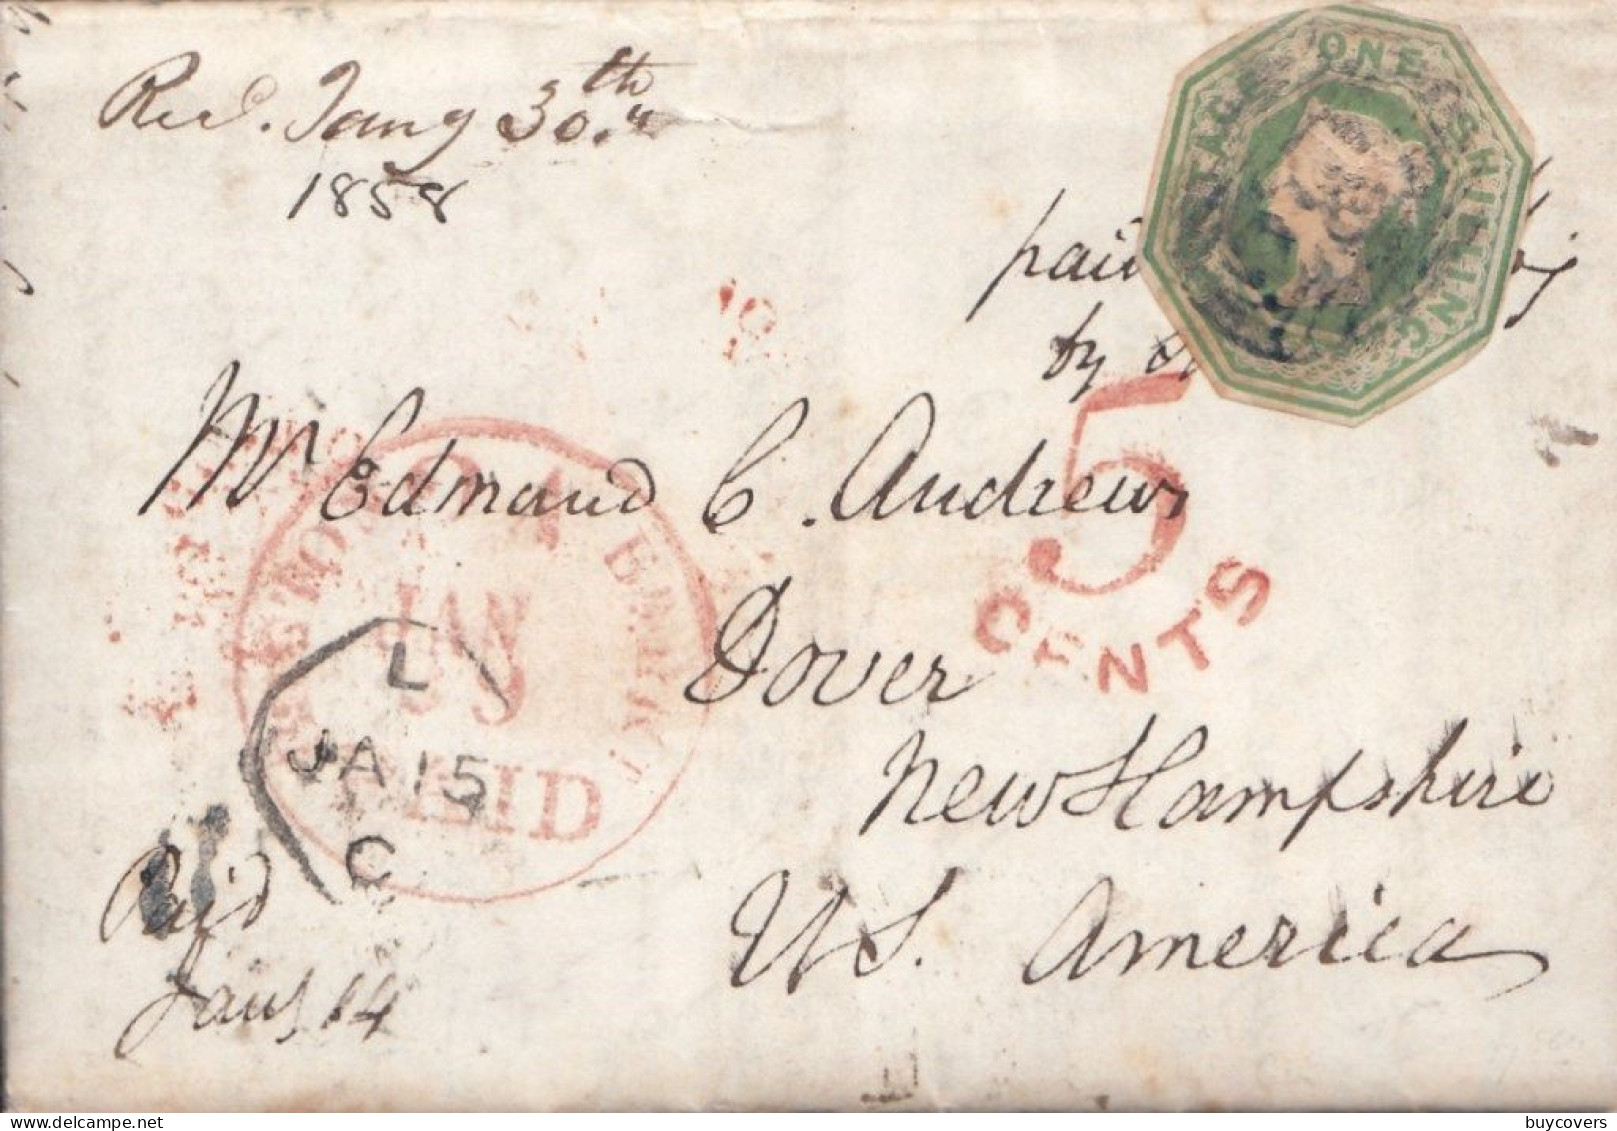 Recd. Jany 30.th
1858
POSTAGE ONE SHILLING
paid
by
Mr Edmund C. Andrews
5
CENTS
BOSTON Br. PKT.
JAN
29
PAID
Dover
New Hampshire
U S. America
L
JA 15
C
Paid
Jany 14
buycovers